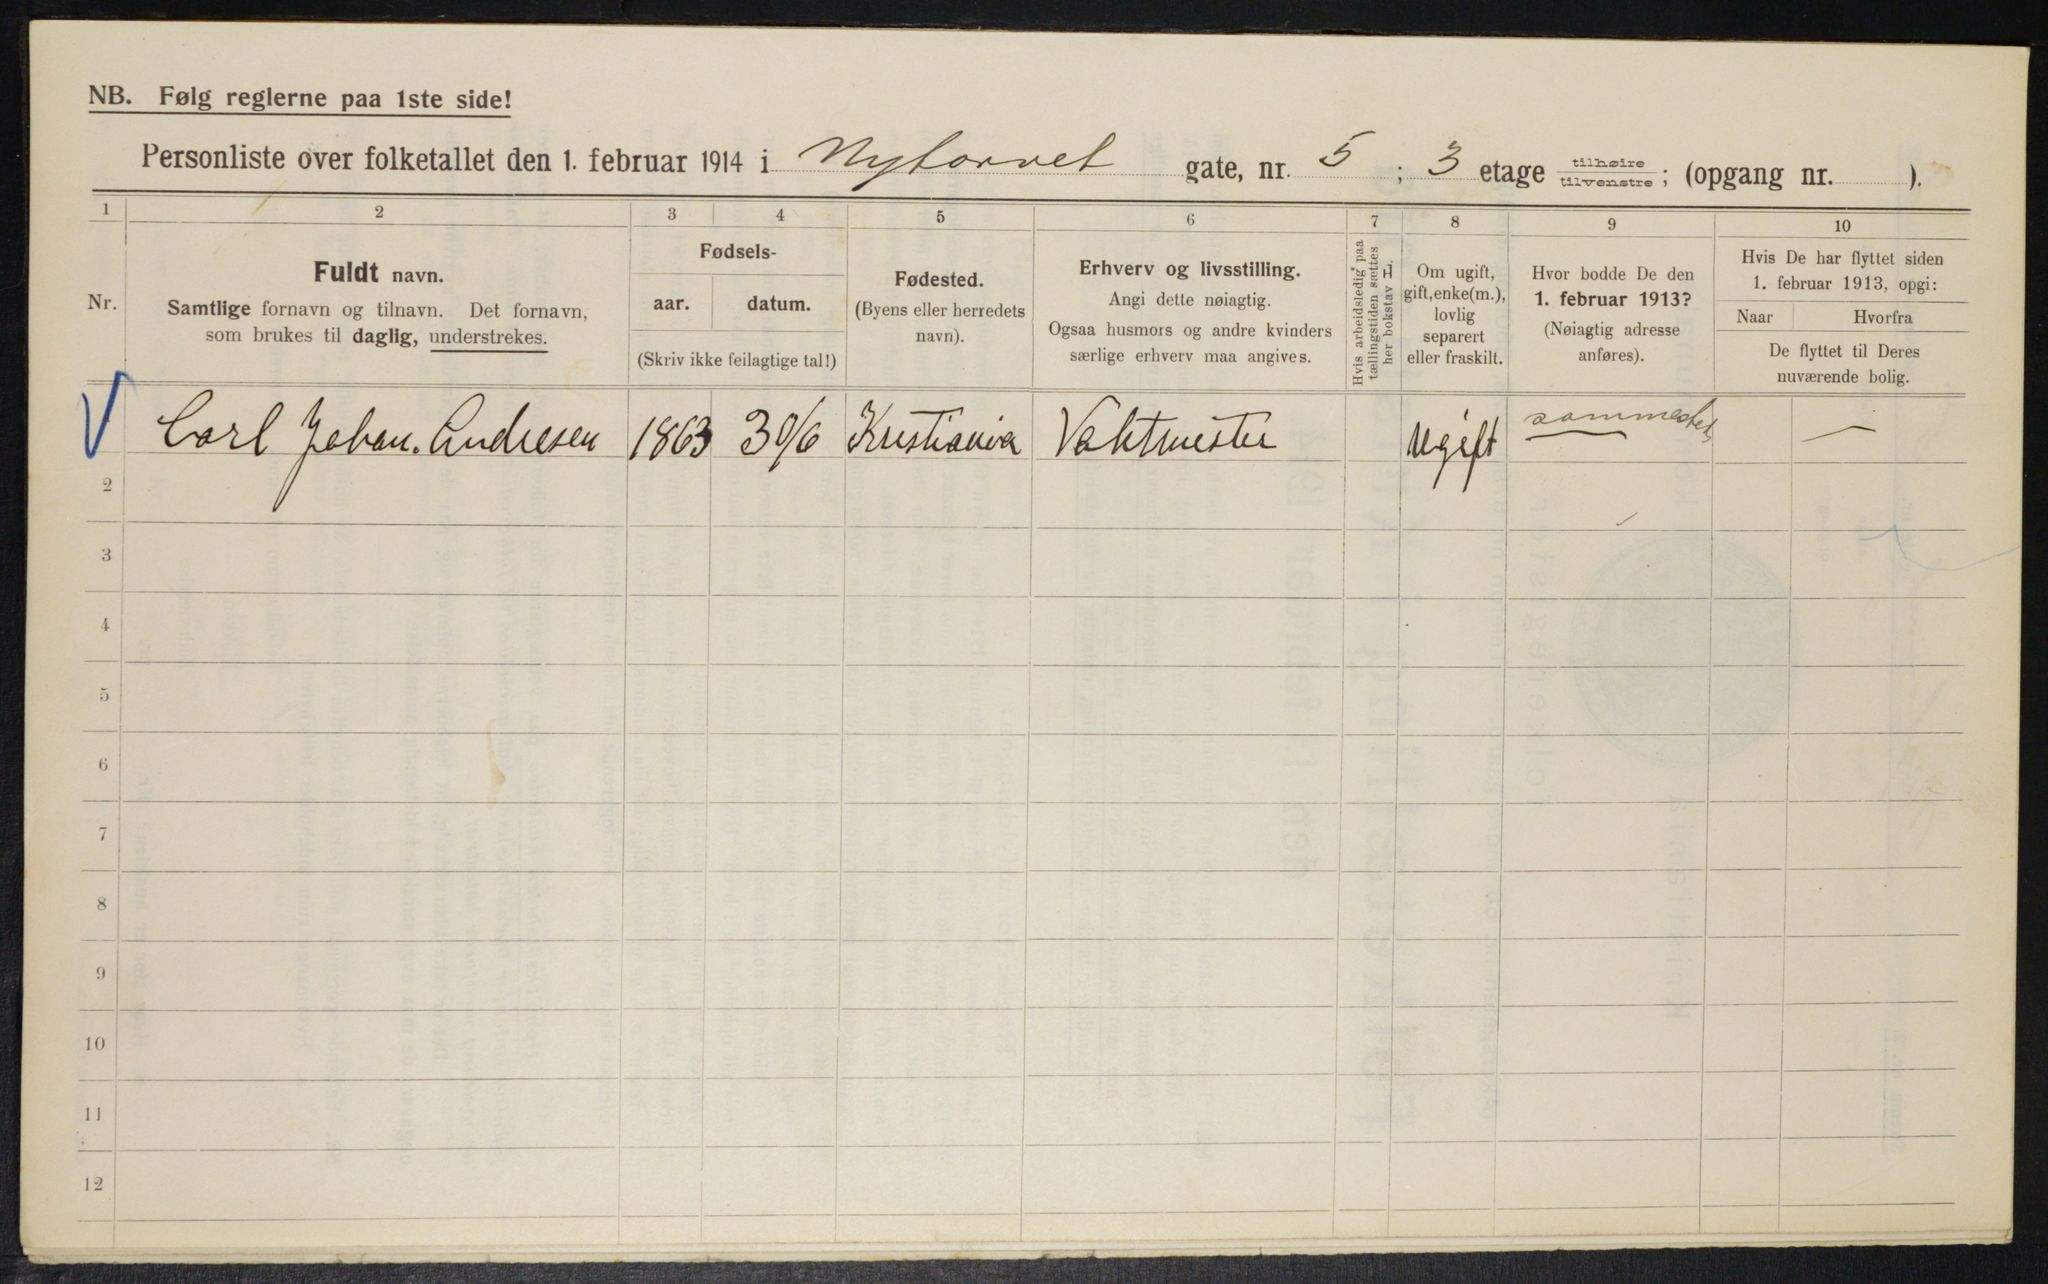 NB. Følg reglerne paa 1ste side!
Personliste over folketallet den 1. februar 1914 i Nytorvet gate, nr. 5 ; 3 etage tilhøire tilvenstre; (opgang nr. ).
1 2 3 4 5 6 7 8 9 10
Nr.
Fuldt navn.
Samtlige fornavn og tilnavn. Det fornavn,
som brukes til daglig, understrekes.
Fødsels-
aar. datum.
(Skriv ikke feilagtige tal!)
Fødested.
(Byens eller herredets
navn).
Erhverv og livsstilling.
Angi dette nøiagtig.
Ogsaa husmors og andre kvinders
særlige erhverv maa angives.
Hvis arbeidsledig paa
tællingstiden sættes
her bokstav L.
Om ugift,
gift, enke(m.),
lovlig
separert
eller fraskilt.
Hvor bodde De den
1. februar 1913?
(Nøiagtig adresse
anføres).
Hvis De har flyttet siden
1. februar 1913, opgi:
Naar Hvorfra
De flyttet til Deres
nuværende bolig.
Carl Johan. Andresen 1863 30/6 Kristiania Vaktmester Ugift sammested, —
2
3
4
5
6
7
8
9
10
11
12